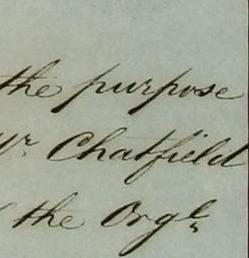 the purpose
Mr Chatfield
the Orgl